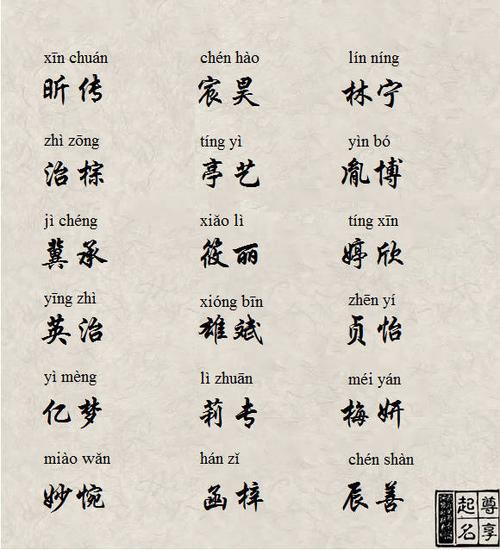 xīn chuán chén hào lín níng
昕传 宸昊 林宁
zhì zōng tíng yì yìn bó
治棕 亭艺 胤博
jì chéng xiǎo lì tíng xīn
冀承 筱丽 婷欣
yīng zhì xióng bīn zhēn yí
英治 雄斌 贞怡
yì mèng lì zhuān méi yán
亿梦 莉专 梅妍
miào wǎn hán zǐ chén shàn
妙惋 函梓 辰善
尊享
起名